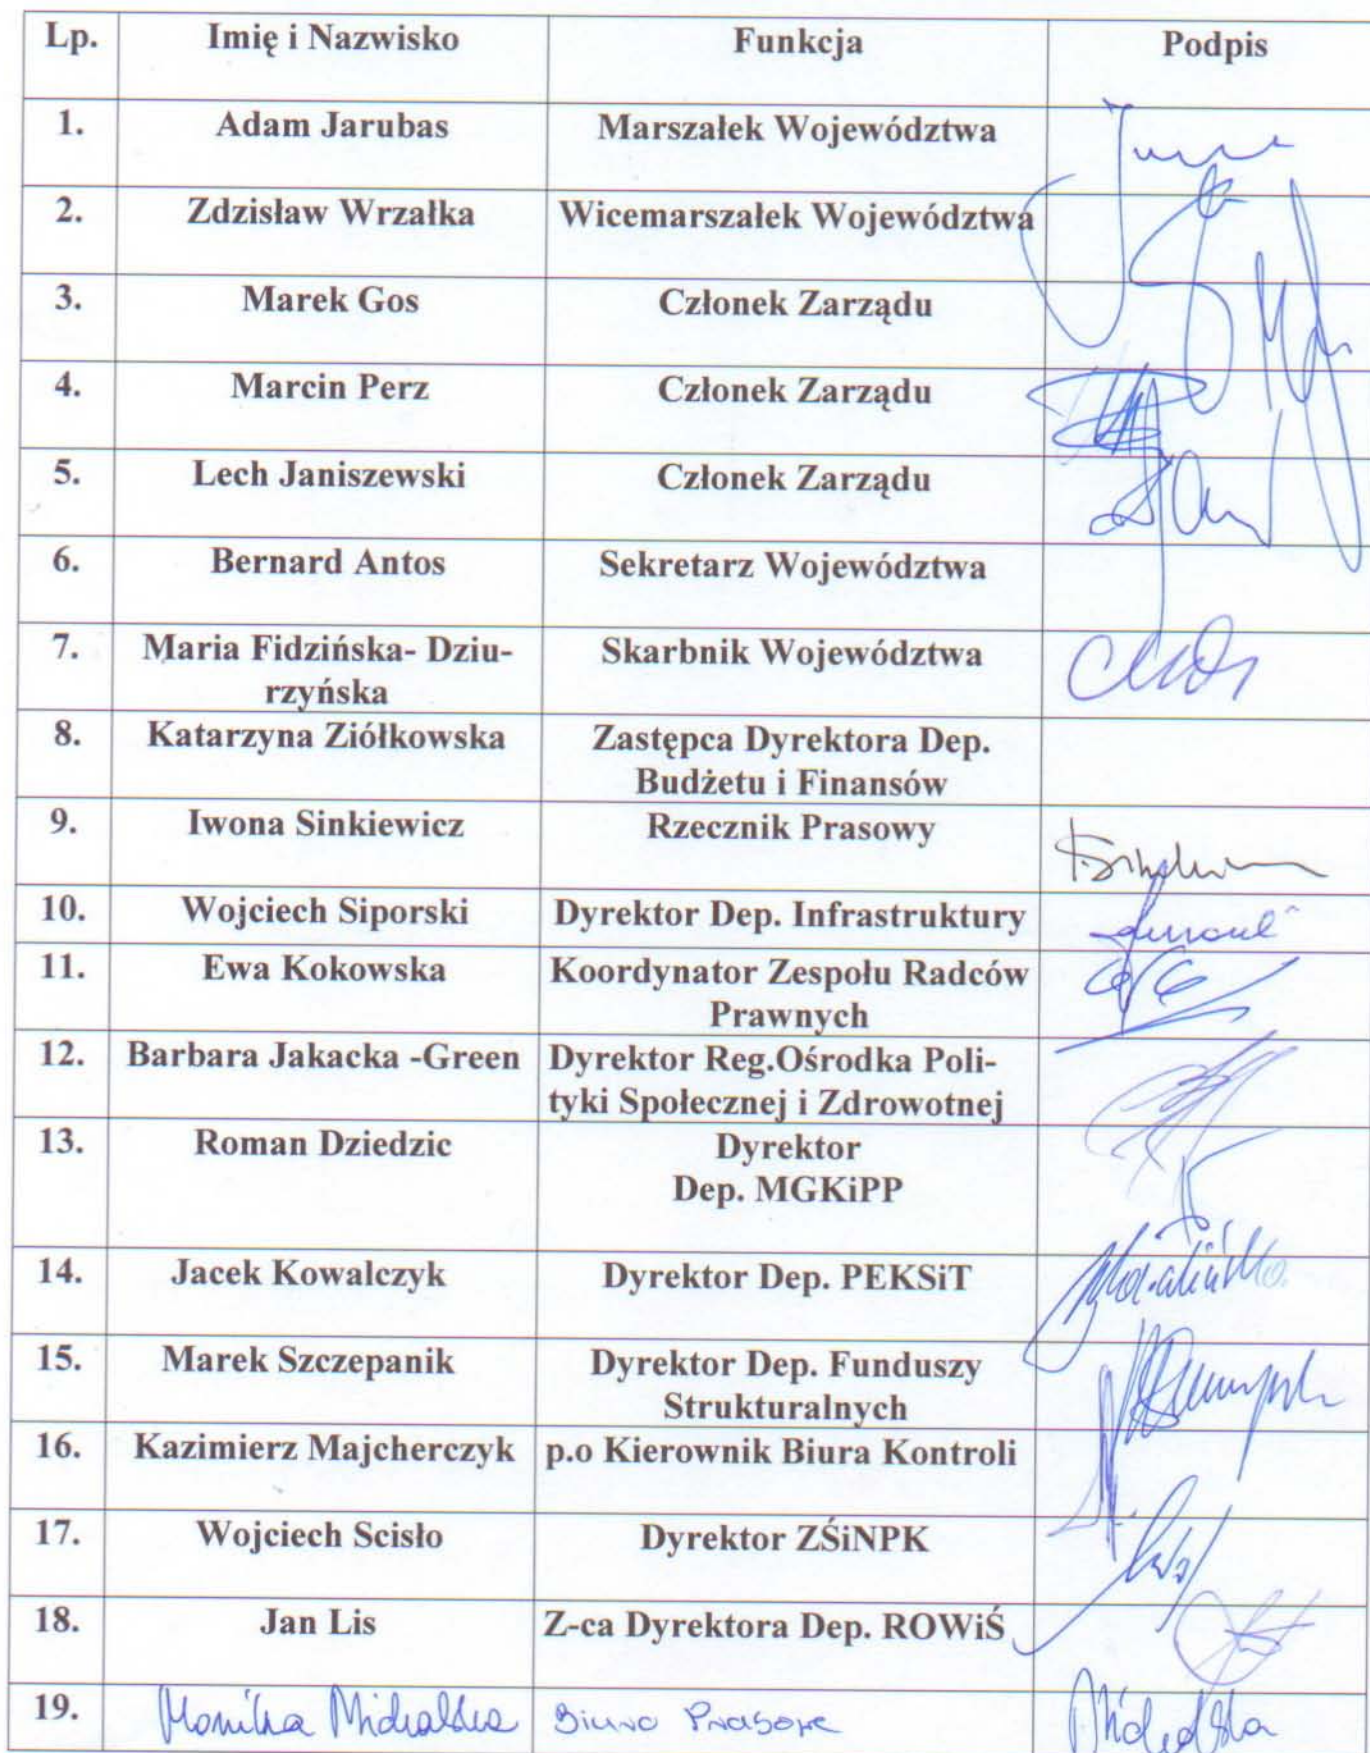 Lp. Imię i Nazwisko Funkcja Podpis
1. Adam Jarubas Marszałek Województwa
2. Zdzisław Wrzałka Wicemarszałek Województwa
3. Marek Gos Członek Zarządu
4. Marcin Perz Członek Zarządu
5. Lech Janiszewski Członek Zarządu
6. Bernard Antos Sekretarz Województwa
7. Maria Fidzińska- Dziu- Skarbnik Województwa
rzyńska
8. Katarzyna Ziółkowska Zastępca Dyrektora Dep.
Budżetu i Finansów
9. Iwona Sinkiewicz Rzecznik Prasowy
10. Wojciech Siporski Dyrektor Dep. Infrastruktury
11. Ewa Kokowska Koordynator Zespołu Radców
Prawnych
12. Barbara Jakacka -Green Dyrektor Reg.Ośrodka Poli-
tyki Społecznej i Zdrowotnej
13. Roman Dziedzic Dyrektor
Dep. MGKiPP
14. Jacek Kowalczyk Dyrektor Dep. PEKSiT
15. Marek Szczepanik Dyrektor Dep. Funduszy
Strukturalnych
16. Kazimierz Majcherczyk p.o Kierownik Biura Kontroli
17. Wojciech Scisło Dyrektor ZŚiNPK
18. Jan Lis Z-ca Dyrektora Dep. ROWiŚ
19. Monika Michalska Biuro Prasowe Michalska